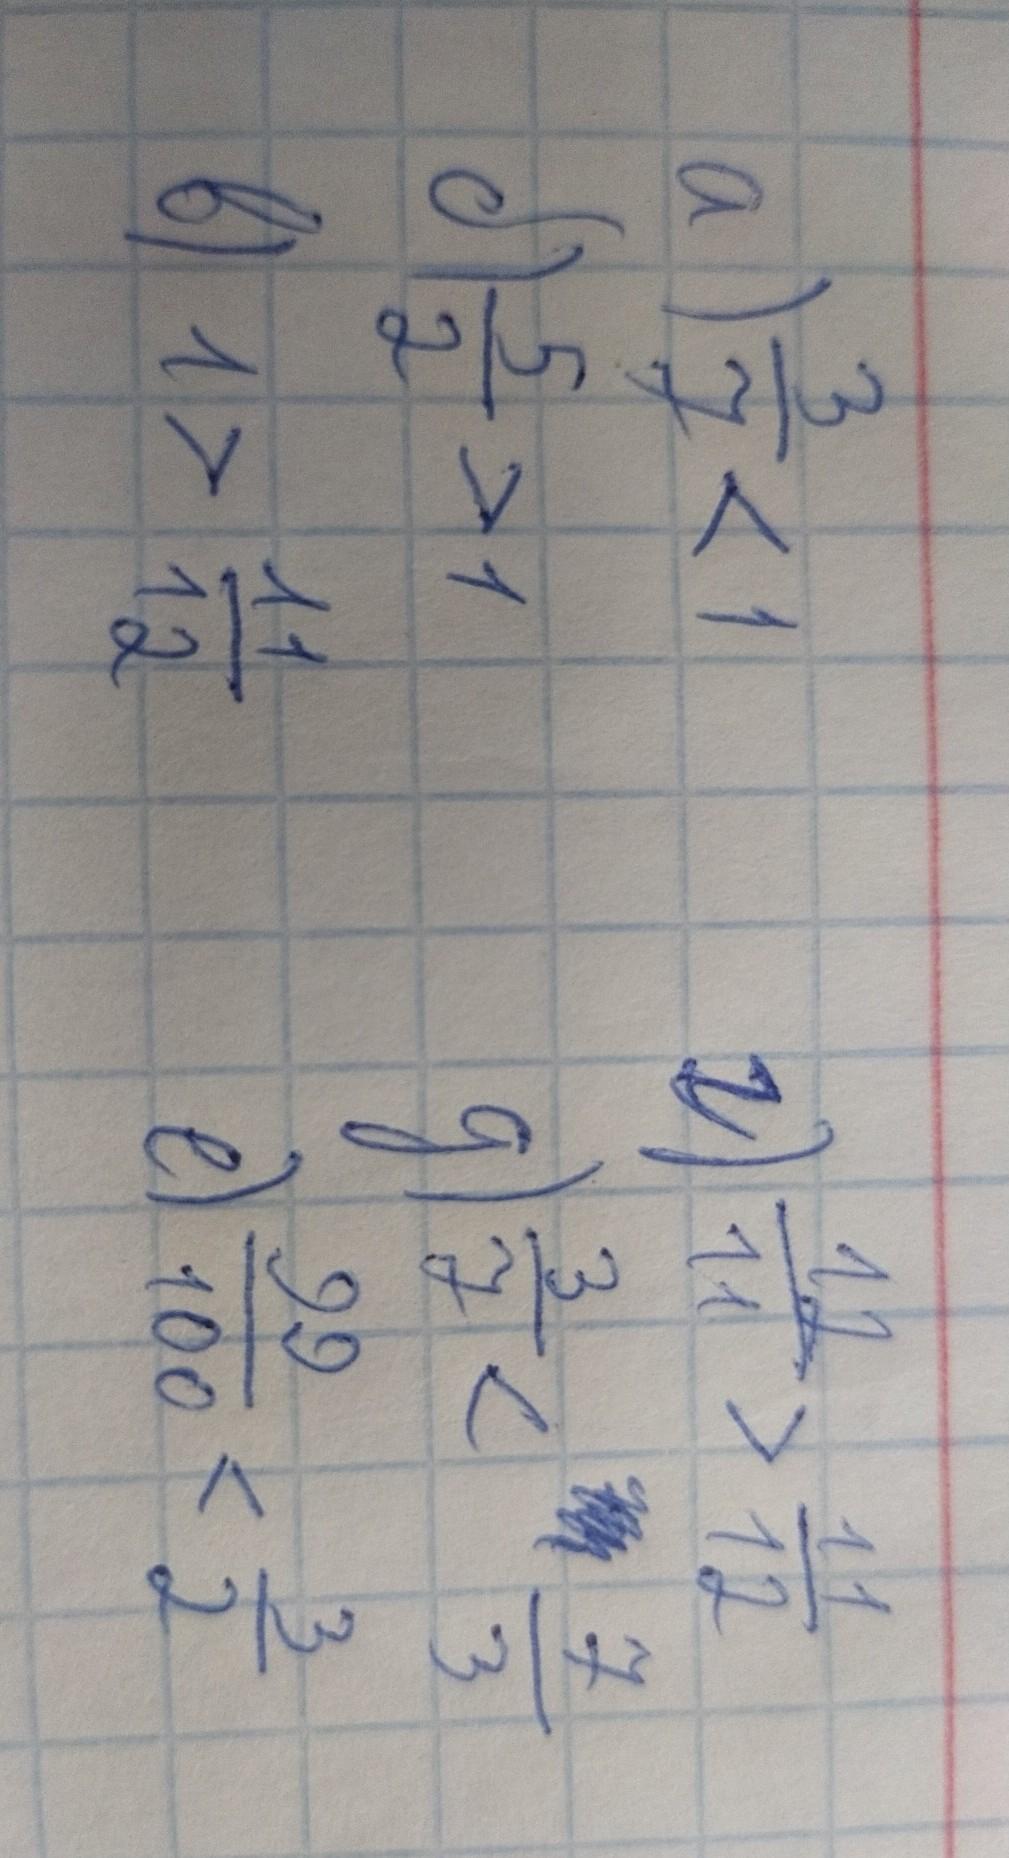 а) 3/7 < 1
б) 5/2 > 1
в) 1 > 11/12
г) 11/11 > 11/12
д) 3/7 < 7/3
е) 99/100 < 3/2